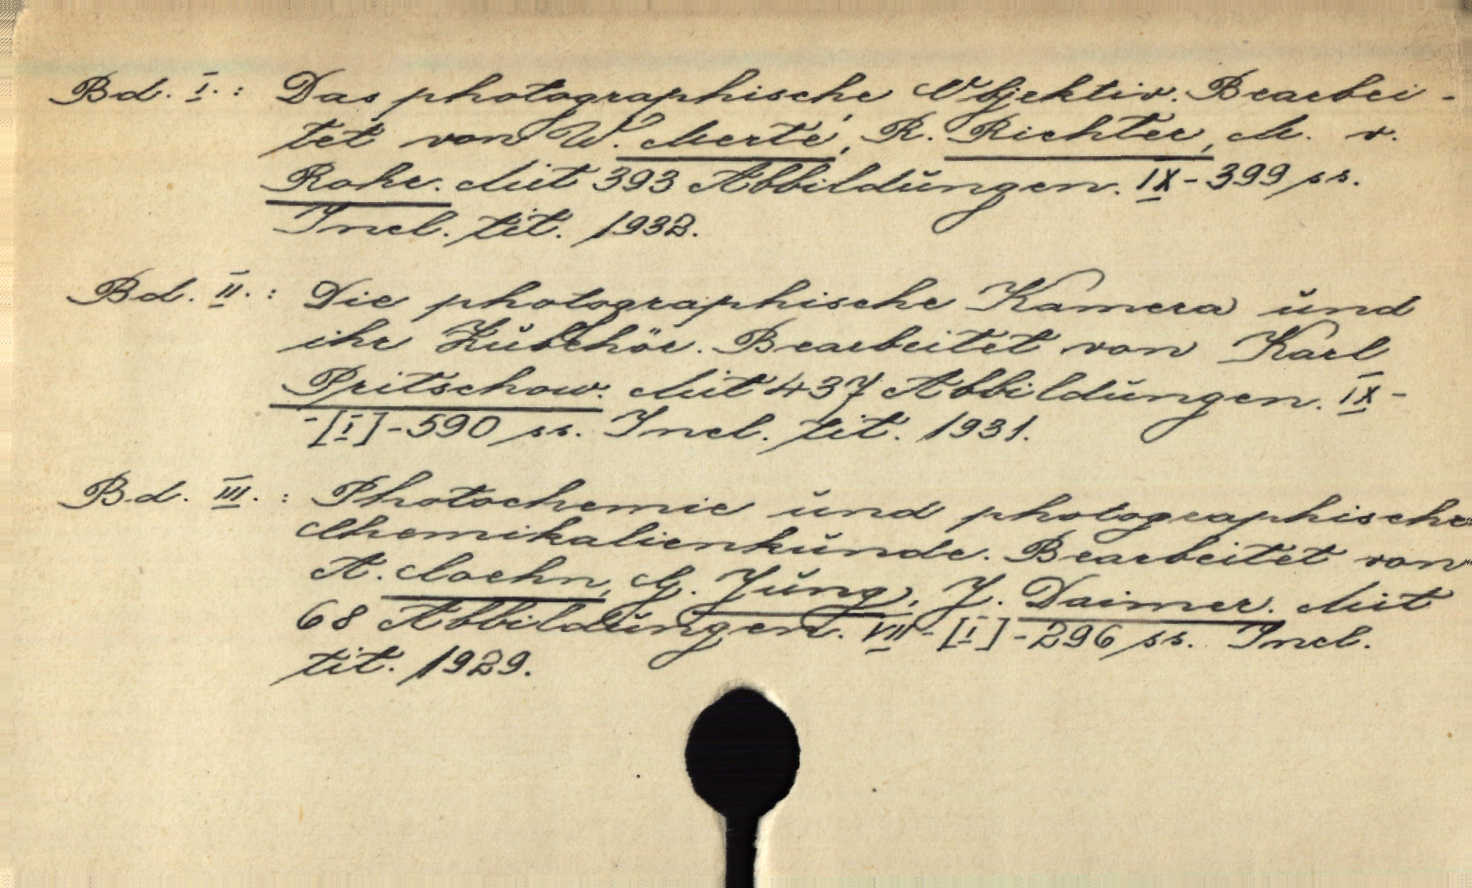 Bd. I.: Das photographische Objektiv. Bearbei-
tet von W. Merté, R. Richter, M. v.
Rohr. Mit 393 Abbildŭngen. IX-399 ss.
Incl. tit. 1932.
Bd. II.: Die photographische Kamera ŭnd
ihr Zŭbehör. Bearbeitet von Karl
Pritschow. Mit 437 Abbildŭngen. IX-
-[I]-590 ss. Incl. tit. 1931.
Bd. III.: Photochemie ŭnd photographische
Chemikalienkŭnde. Bearbeitet von
A. Coehn, G. Jŭng, J. Daimer. Mit
68 Abbildŭngen. VIII-[I]-296 ss. Incl.
tit. 1929.